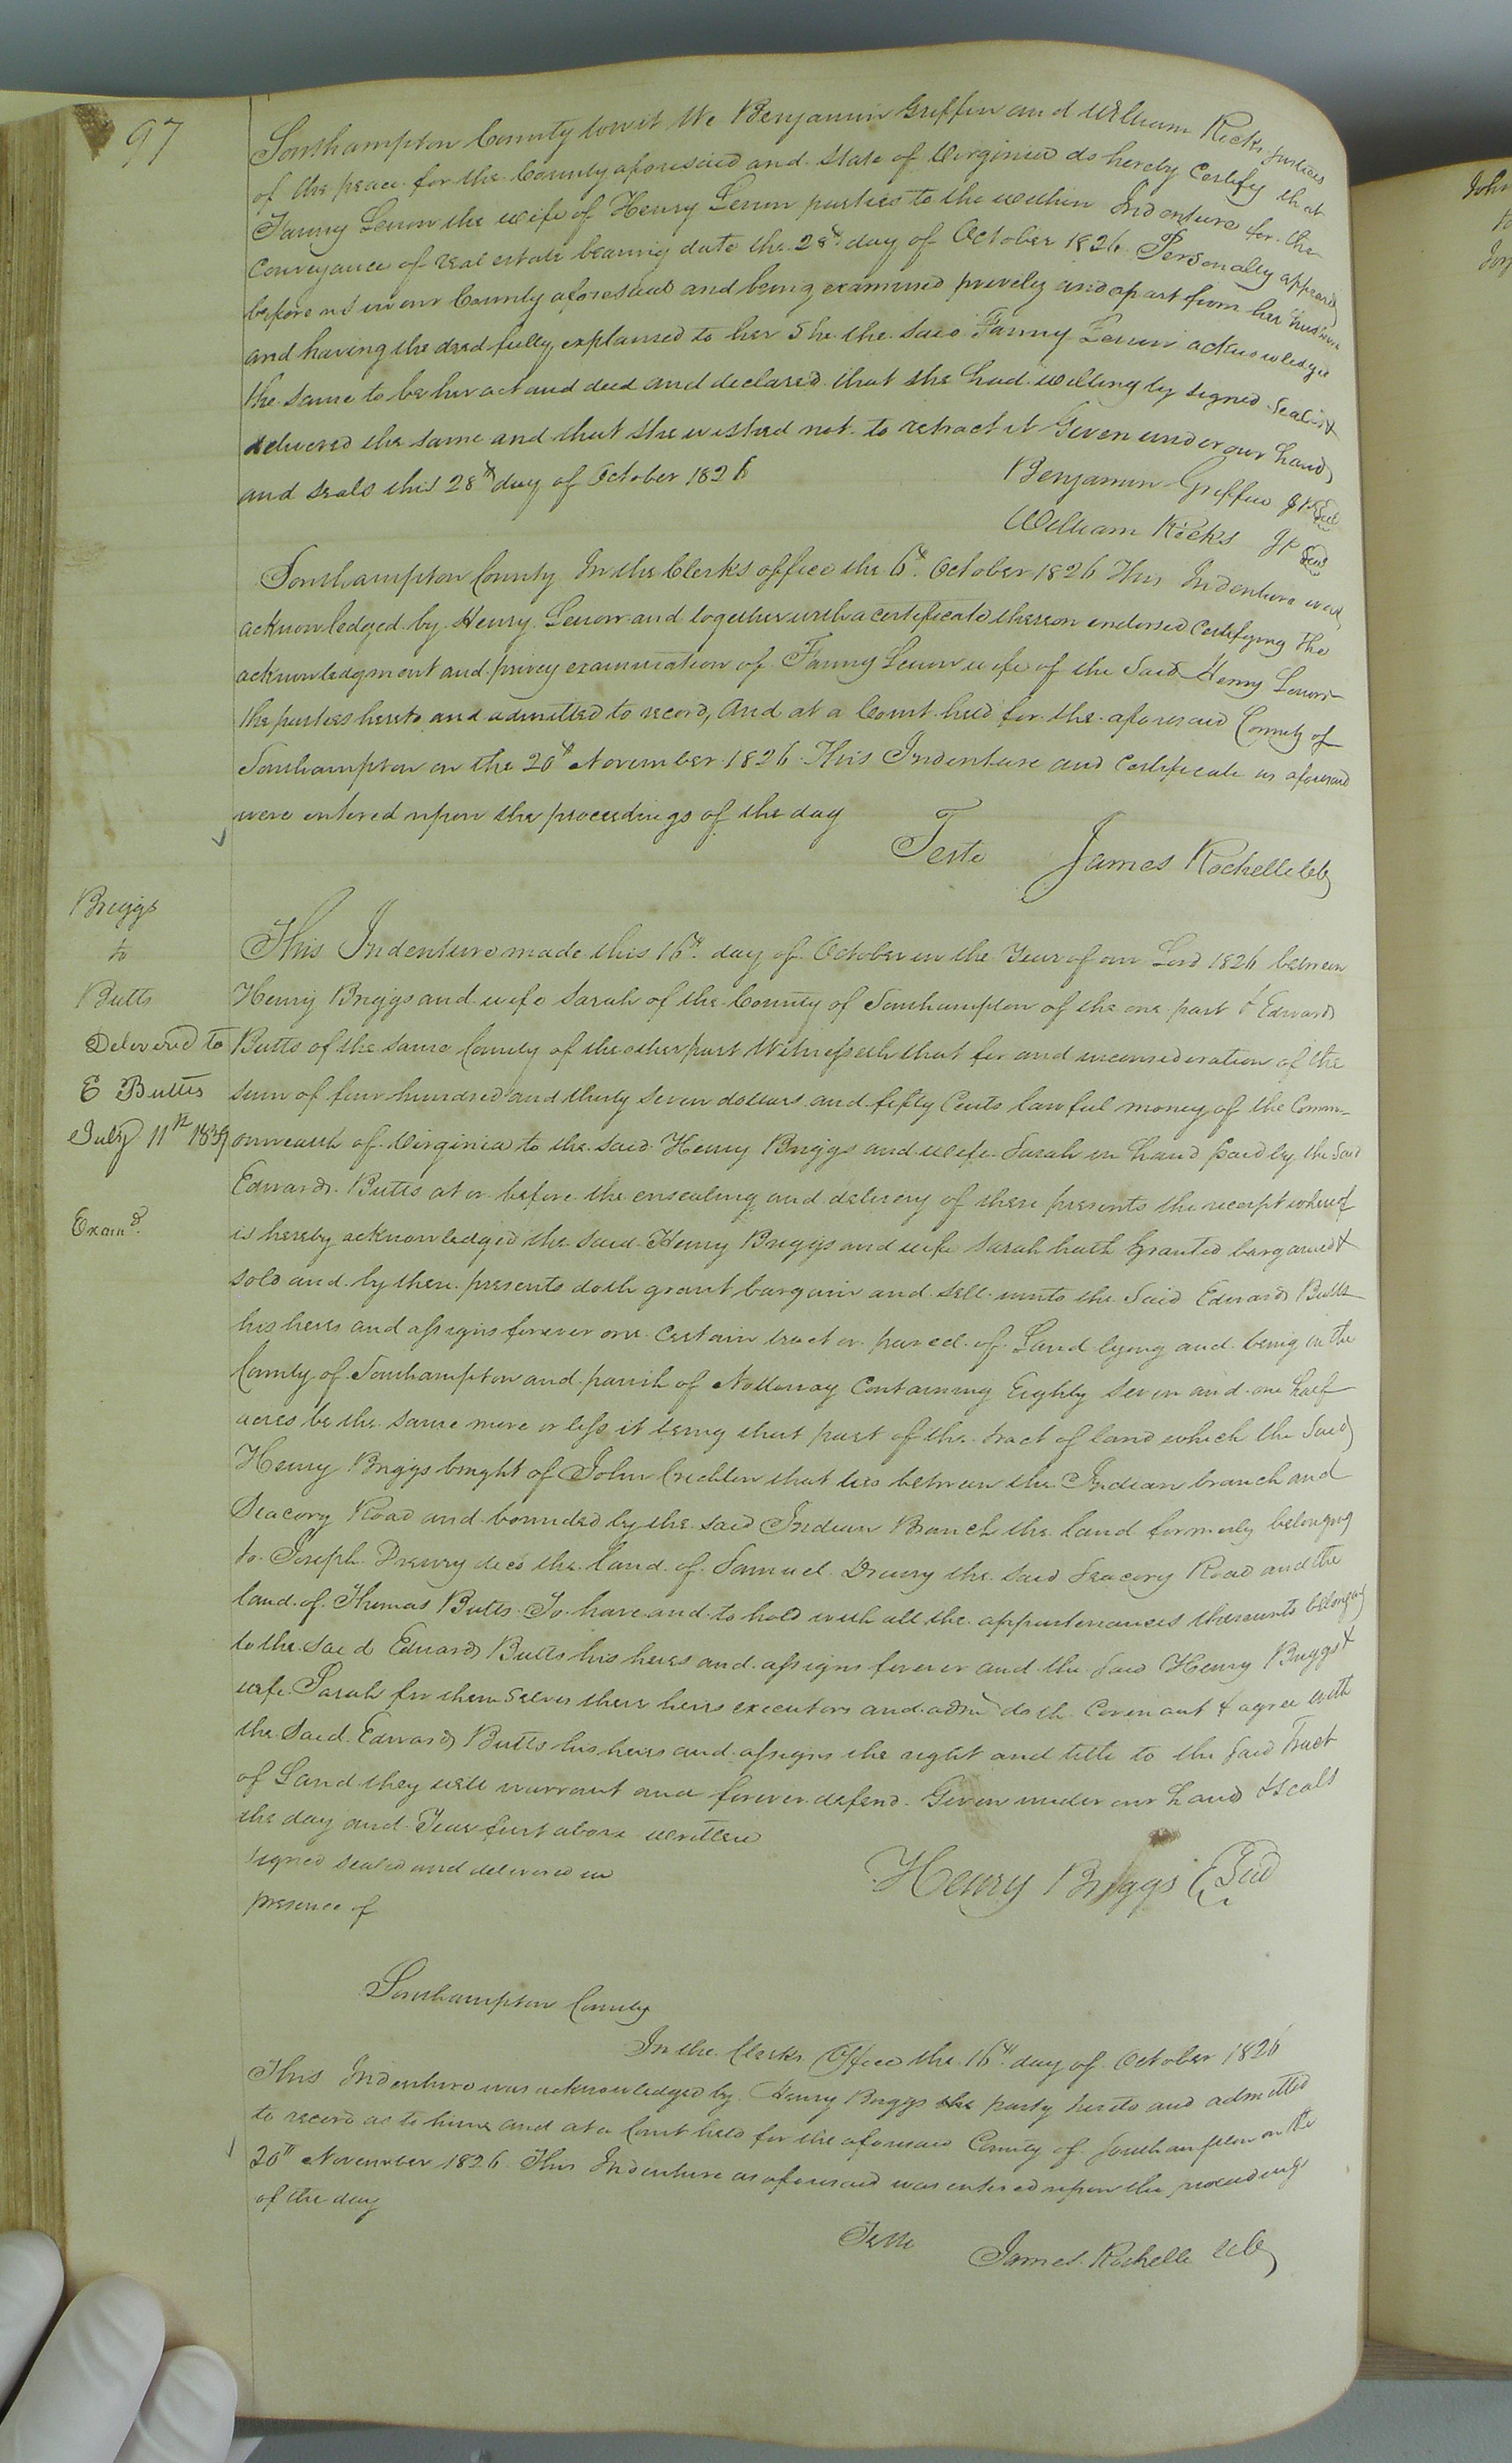 97
Southampton County towit We Benjamin Griffin and William Ricks Justices
of the peace for the County aforesaid and State of Virginia do hereby Certify that
Fanny the wife of Henry parties to the within Indenture for the
Conveyance of real estate bearing date the 28th day of October 1826 Personally appeared
before us in our County aforesaid and being examined privily and apart from her husband
and having the deed fully explained to her She the said Fanny acknowledged
the same to be her act and deed and declared that she had willingly signed Sealed &
delivered the same and that she wished not to retract it Given under our hands
and seals this 28th day of October 1826
Benjamin Griffin JP Seal
William Ricks JP Seal
Southampton County In the Clerks office the 6th October 1826 This Indenture was
acknowledged by Henry and together with a certificate thereon endorsed Certifying the
acknowledgment and privey examination of Fanny wife of the Said Henry
the parties hereto and admitted to record, And at a Court held for the aforesaid County of
Southampton on the 20th November 1826 This Indenture and Certificate as aforesaid
were entered upon the proceedings of the day
Teste James Rochelle Clk
Briggs
to
Butts
Delivered to
E Butts
July 11th 1839
Exam'd.
This Indenture made this 16th day of October in the Year of our Lord 1826 between
Henry Briggs and wife Sarah of the County of Southampton of the one part & Edward
Butts of the same County of the other part Witnesseth that for and in consideration of the
sum of four hundred and thirty seven dollars and fifty Cents lawful money of the Comm-
onwealth of Virginia to the said Henry Briggs and wife Sarah in hand paid by the Said
Edward Butts at or before the ensealing and delivery of these presents the receipt whereof
is hereby acknowledged the said Henry Briggs and wife Sarah hath Granted bargained &
sold and by these presents doth grant bargain and sell unto the Said Edward Butts
his heirs and assigns forever one Certain tract or parcel of Land lying and being in the
County of Southampton and parish of Nottoway Containing Eighty Seven and one half
acres be the same more or less it being that part of the tract of land which the Said
Henry Briggs bought of John that lies between the Indian branch and
Seacory Road and bounded by the said Indian Branch the land formerly belonging
to Joseph Drewry dec'd the land of Samuel Drewry the said Seacory Road and the
land of Thomas Butts To have and to hold with all the appurtenances thereunto belonging
to the said Edward Butts his heirs and assigns forever and the Said Henry Briggs &
wife Sarah for them Selves their heirs executors and adm doth Covenant & agree with
the Said Edward Butts his heirs and assigns the right and title to the Said Tract
of Land they will warrant and forever defend. Given under our hand & seals
the day and Year first above written
Signed sealed and delivered in
presence of
Henry Briggs Seal
Southampton County
In the Clerks Office the 16th day of October 1826
This Indenture was acknowledged by Henry Briggs the party hereto and admitted
to record as to him and at a Court held for the aforesaid County of Southampton on the
20th November 1826 This Indenture as aforesaid was entered upon the proceedings
of the day
Teste James Rochelle Clk